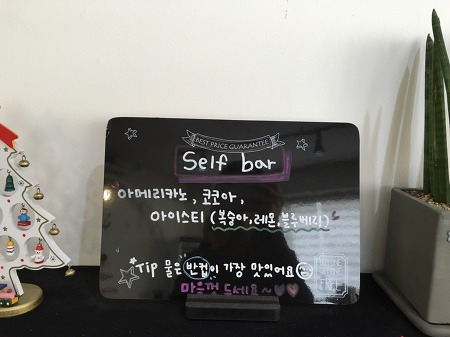 BEST PRICE GUARANTEE
Self bar
아메리카노, 코코아,
아이스티 (복숭아,레몬,블루베리)
Tip 물은 반컵이 가장 맛있어요
마음껏 드세요~